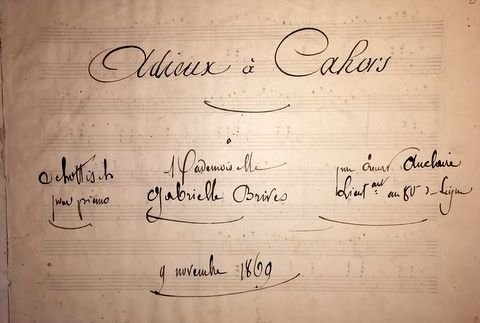 Adieux à Cahors
à
Schottisch
pour piano
Mademoiselle
Gabrielle Brives
par Auclaire
Lieut au 8 Ligne
9 novembre 1869